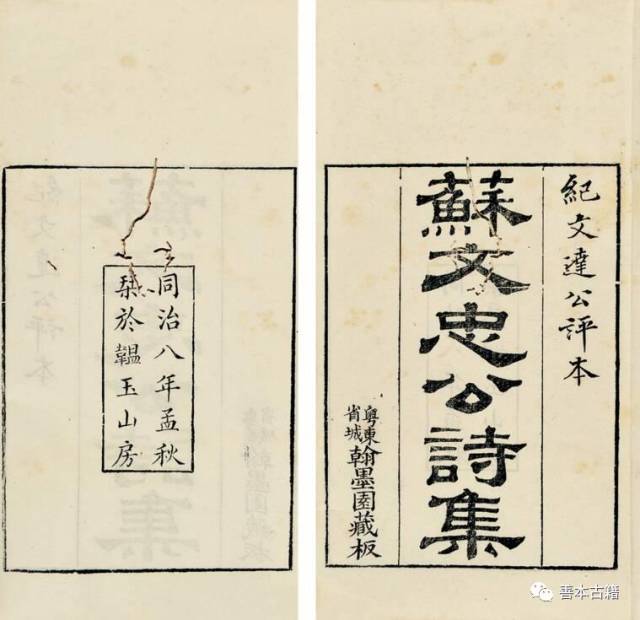 紀文達公評本
蘇文忠公詩集
粵東省城翰墨園藏板
同治八年孟秋
栞於韞玉山房
善本古籍